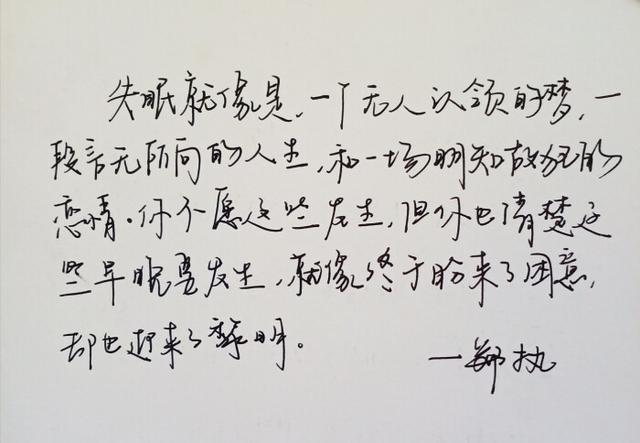 失眠就像是,一个无人认领的梦,一
段言无所向的人生,和一场明知故犯的
恋情.你不愿这些发生,但你也清楚这
些早晚要发生,就像终于盼来了困意,
却也迎来了黎明。
一郑执